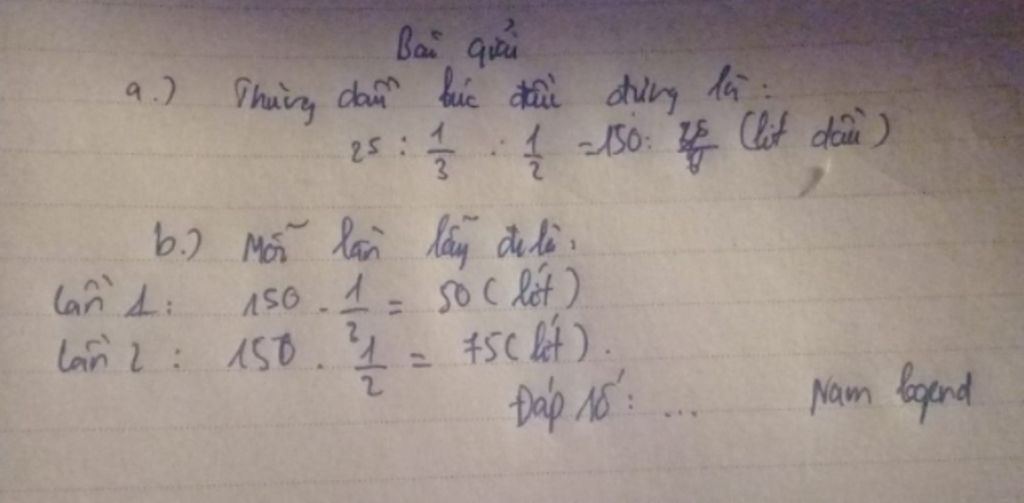 Bài giải
a.) Thùng dầu lúc đầu đựng là:
25 : 1/3 . 1/2 = 150: (lít dầu)
b.) Mỗi lần lấy đi là:
Lần 1: 150 . 1/3 = 50 (lít)
Lần 2 : 150 . 1/2 = 75 (lít).
Đáp số: ...
Nam legend